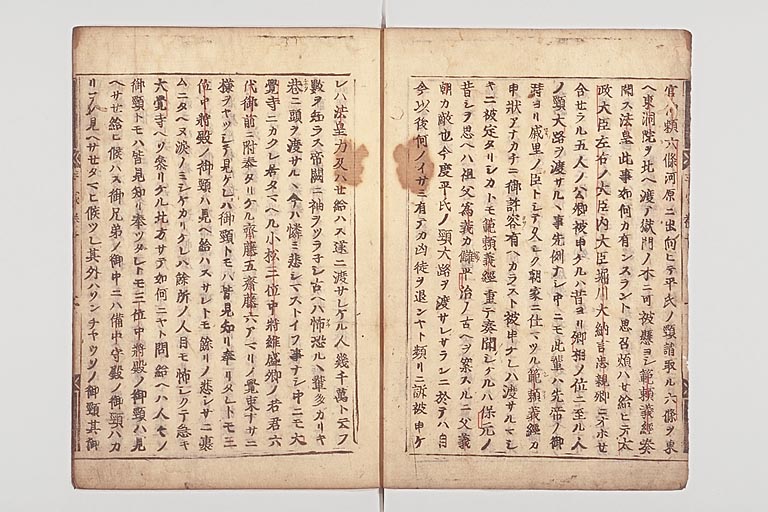 六條河原ニ出向ヒテ平氏ノ頸請取ル六條ヲ東
ヘ東洞院ヲ北ヘ渡テ獄門ノ木ニ可被懸ヨシ範頼義經奏
聞ス法皇此事如何カ有ンスラント思召煩ハサせ給ヒテ太
政大臣左右ノ大臣内大臣堀川大納言忠親卿ニオホせ
合せラル五人ノ公卿被申ケルハ昔ヨリ卿相ノ位ニ至ル人
ノ頸大路ヲ渡サルヽ事先例ナシ中ニモ此輩ハ先帝ノ御
時ヨリ戚里ノ臣トシテ久シク朝家ニ仕ヘツル範頼義經カ
申狀アナカチニ御許容有ヘカラスト被申ケレハ渡サルマシ
キニ被定タリシカトモ範頼義經重テ奏聞シケルハ保元ノ
昔シヲ思ヘハ祖父爲義カ讎平治ノ古ヘヲ案スルニ父義
朝カ敵也今度平氏ノ頸大路ヲ渡サレサランニ於テハ自
今以後何ノイサミ有テカ凶徒ヲ退ンヤト頻リニ訴被申ケ
レハ法皇力及ハせ給ハス遂ニ渡サレケル人幾千萬ト云フ
數ヲ知ラス帝闕ニ袖ヲツラネシ古ヘハ怖恐ルヽ輩多カリキ
巷ニ頭ヲ渡サルヽ今ハ憐ミ悲シマストイフ事ナシ中ニモ大
覺寺ニカクレ居タマヘル小松三位中將維盛卿ノ若君六
代御前ニ附奉タリケル齋藤五齋藤六アマリノ覺束ナサニ
様ヲヤツシテ見ケレハ御頸トモハ皆見知リ奉リタレトモ三
位中將殿ノ御頸ハ見ヘ給ハスサレトモ餘リノ悲シサニ裹
ムニタヘヌ涙ノミシケカリケレハ餘所ノ人目モ怖シクテ急キ
大覺寺ヘソ参リケル北方サテ如何ニヤト問給ヘハ人々ノ
御頸トモハ皆見知リ奉ツタレトモ三位中將殿ノ御頸ハ見
ヘサせ給ヒ候ハス御兄弟ノ御中ニハ備中守殿ノ御頸ハカ
リコソ見ヘサせタマヒ候ツレ其外ハソンチヤウソノ御頸其御